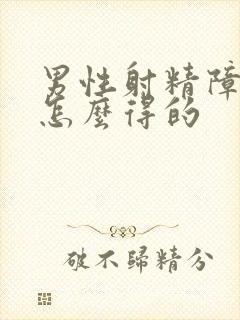 男性射精障
怎麼得的
破不歸精分